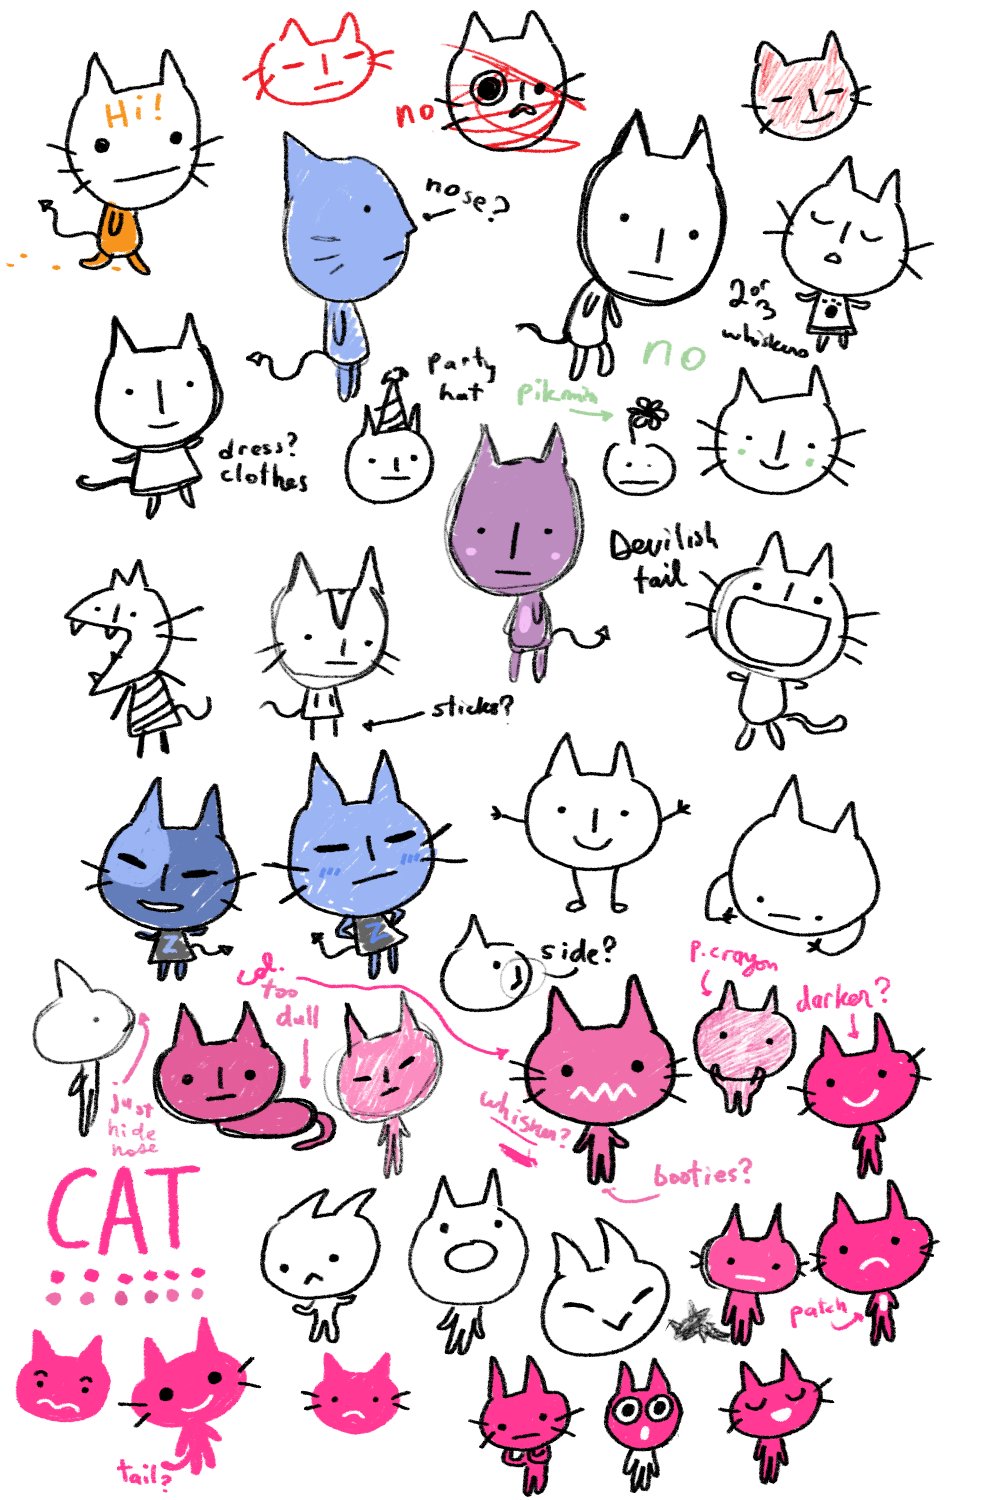 Hi!
no
nose?
2 or 3
whiskers
no
party
hat
pikmin
dress?
clothes
Devilish
tail
sticks?
Z
Z
side?
p.crayon
too
dull
darker?
just
hide
nose
whisker?
booties?
CAT
patch
tail?